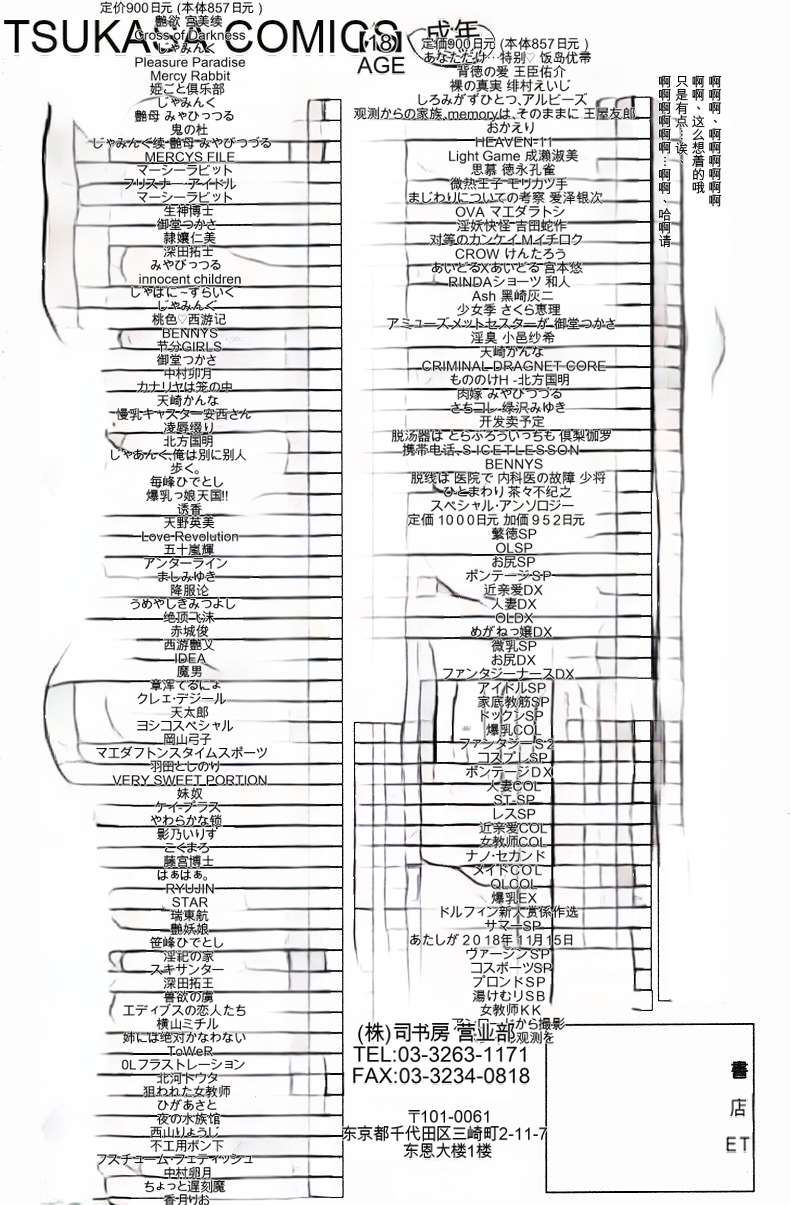 TSUKASA COMICS
18
AGE
成年
定价900日元 (本体857日元 )
艶欲 宫美续
Cross of Darkness
じゃみんく
Pleasure Paradise
Mercy Rabbit
姫ごと倶乐部
じゃみんく
艶母 みやひっつる
鬼の杜
じゃみんく续 艶母 みやびつづる
MERCYS FILE
マーシーラビット
プリスナー·アイドル
マーシーラビット
生神博士
御堂つかさ
隷孃仁美
深田拓士
みやびっつる
innocent children
じゃはに~すらいく
じゃみんく
桃色♡西游记
BENNYS
节分GIRLS
御堂つかさ
中村卯月
カナリヤは笼の中
天崎かんな
慢乳キャスター安西さん
凌辱缀り
北方国明
じゃあんく、俺は別に别人
歩く。
毎峰ひでとし
爆乳っ娘天国!!
诱香
天野英美
Love Revolution
五十嵐輝
アンターライン
ましみゆき
降服论
うめやしきみつよし
绝顶飞沫
赤城俊
西游艷义
IDEA
魔男
草渾てるにょ
クレェ·デジール
天太郎
ヨシコスペシャル
岡山弓子
マエダフトンスタイムスポーツ
羽田としのり
VERY SWEET PORTION
妹奴
ケイ·プラス
やわらかな锁
影乃いりす
こくまろ
藤宫博士
はぁはぁ。
RYUJIN
STAR
瑞東航
艷妖娘
笹峰ひでとし
淫祀の家
スキサンター
深田拓王
兽欲の虜
エディブスの恋人たち
横山ミチル
姉には绝对かなわない
ToWeR
0Lフラストレーション
北河トウタ
狙われた女教师
ひがあさと
夜の水族馆
西山りょうじ
不工用ボン下
フスチューム·フェティッシュ
中村卵月
ちょっと遅刻魔
香月りお
定价900日元 (本体857日元 )
あなただけ…特别♡ 饭岛优帯
背徳の爱 王臣佑介
裸の真実 绯村えいじ
しろみがずひとつ、アルビーズ
观测からの家族、memoryは、そのままに 王屋友郎
おかえり
HEAVEN-11
Light Game 成濑淑美
思慕 徳永孔雀
微热王子 モリカツ手
まじわりについての考察 爱泽银次
OVA マエダラトシ
淫妖快怪 吉田蛇作
对等のカンケイ Mイチロク
CROW けんたろう
あいどるXあいどる 宫本悠
RINDAショーツ 和人
Ash 黑崎灰二
少女季 さくら恵理
アミューズメットセスターが 御堂つかさ
淫臭 小邑纱希
天崎がんな
CRIMINAL DRAGNET CORE
もののけH -北方国明
肉嫁 みやびつづる
さちコレ 绿沢みゆき
开发卖予定
脱汤器は とらぶろういっちも 倶梨伽罗
携帯电话、S-ICETLESSON
BENNYS
脱线は 医院で 内科医の故障 少将
ひとまわり 茶々不纪之
スペシャル·アンソロジー
定価 1000日元 加価 952日元
繁徳SP
OLSP
お尻SP
ボンテージSP
近亲爱DX
人妻DX
OLDX
めがねっ嬢DX
微乳SP
お尻DX
ファンタジーナースDX
アイドルSP
家庭教筋SP
ドックンSP
爆乳COL
ファンタジーS2
コスプレSP
ボンテージDX
人妻COL
ST-SP
レスSP
近亲爱COL
女教师COL
ナノ·セカンド
メイドCOL
QLCOL
爆乳EX
ドルフィン新人赏係作选
サマーSP
あたしが 2018年 11月15日
ヴァージンSP
コスポーツSP
ブロンドSP
湯けむりSB
女教师KK
から撮影
观测を
(株)司书房 营业部
TEL:03-3263-1171
FAX:03-3234-0818
〒101-0061
东京都千代田区三崎町2-11-7
东恩大楼1楼
啊啊啊、啊啊啊啊啊
啊啊、这么想着的哦
只是有点…诶…
啊啊啊啊啊啊…啊啊、哈啊请
書
店
ET